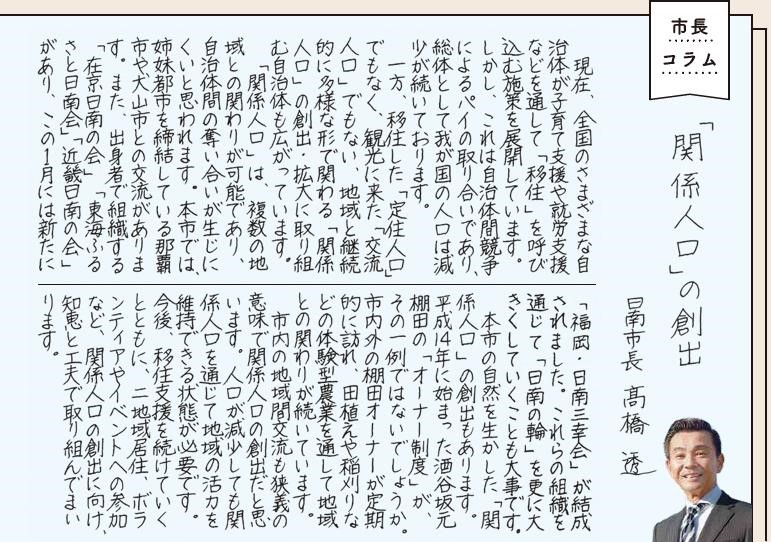 市長
コラム
「関係人口」の創出
日南市長 髙橋 透
現在、全国のさまざまな自
治体が子育て支援や就労支援
などを通して「移住」を呼び
込む施策を展開しています。
しかし、これは自治体間競争
によるパイの取り合いであり、
総体として我が国の人口は減
少が続いております。
一方、移住した「定住人口」
でもなく、観光に来た「交流
人口」でもない、地域と継続
的に多様な形で関わる「関係
人口」の創出・拡大に取り組
む自治体も広がっています。
「関係人口」は、複数の地
域との関わりが可能であり、
自治体間の奪い合いが生じに
くいと思われます。本市では、
姉妹都市を締結している那覇
市や犬山市との交流がありま
す。また、出身者で組織する
「在京日南の会」「東海ふる
さと日南会」「近畿日南の会」
があり、この1月には新たに
「福岡・日南三幸会」が結成
されました。これらの組織を
通じて「日南の輪」を更に大
きくしていくことも大事です。
本市の自然を生かした「関
係人口」の創出もあります。
平成14年に始まった酒谷坂元
棚田の「オーナー制度」が、
その一例ではないでしょうか。
市内外の棚田オーナーが定期
的に訪れ、田植えや稲刈りな
どの体験型農業を通して地域
との関わりが続いています。
市内の地域間交流も狭義の
意味で関係人口の創出だと思
います。人口が減少しても関
係人口を通じて地域の活力を
維持できる状態が必要です。
今後、移住支援を続けていく
とともに、二地域居住、ボラ
ンティアやイベントへの参加
など、関係人口の創出に向け、
知恵と工夫で取り組んでまい
ります。